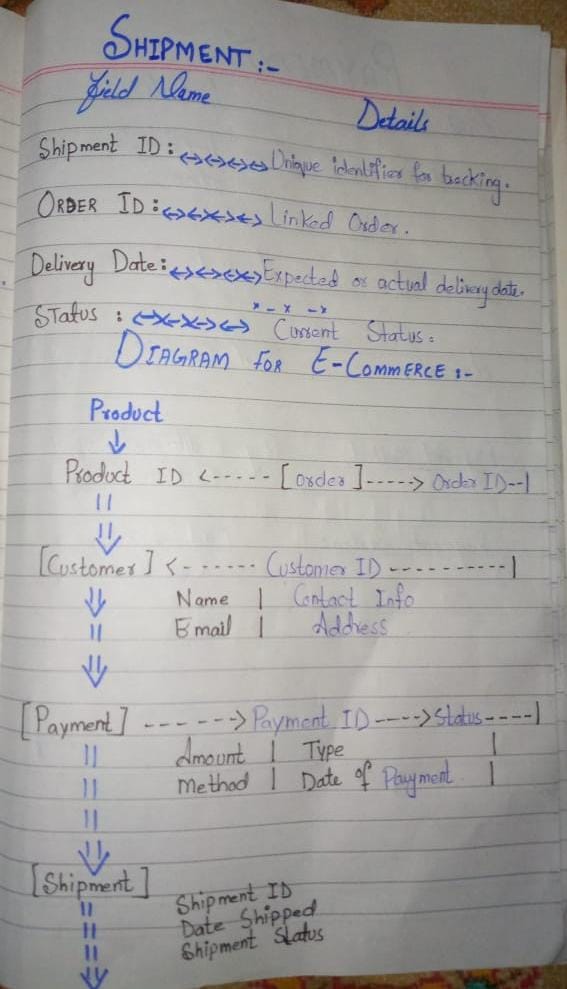 SHIPMENT:-
Field Name
Details
Shipment ID: <-><-><-><-> Unique identifier for tracking.
ORDER ID: <-><-×-><-> Linked Order.
Delivery Date: <-><-><-×-> Expected or actual delivery date.
STatus : <-×-×-><-> Current Status.
DIAGRAM FOR E-COMMERCE :-
Product
↓
Product ID <----- [order]-----> Order ID--|
[Customer] <------ Customer ID ----------|
Name | Contact Info
Email | Address
[Payment] ------> Payment ID ----> Status----|
Amount | Type |
Method | Date of Payment |
[Shipment]
Shipment ID
Date Shipped
Shipment Status